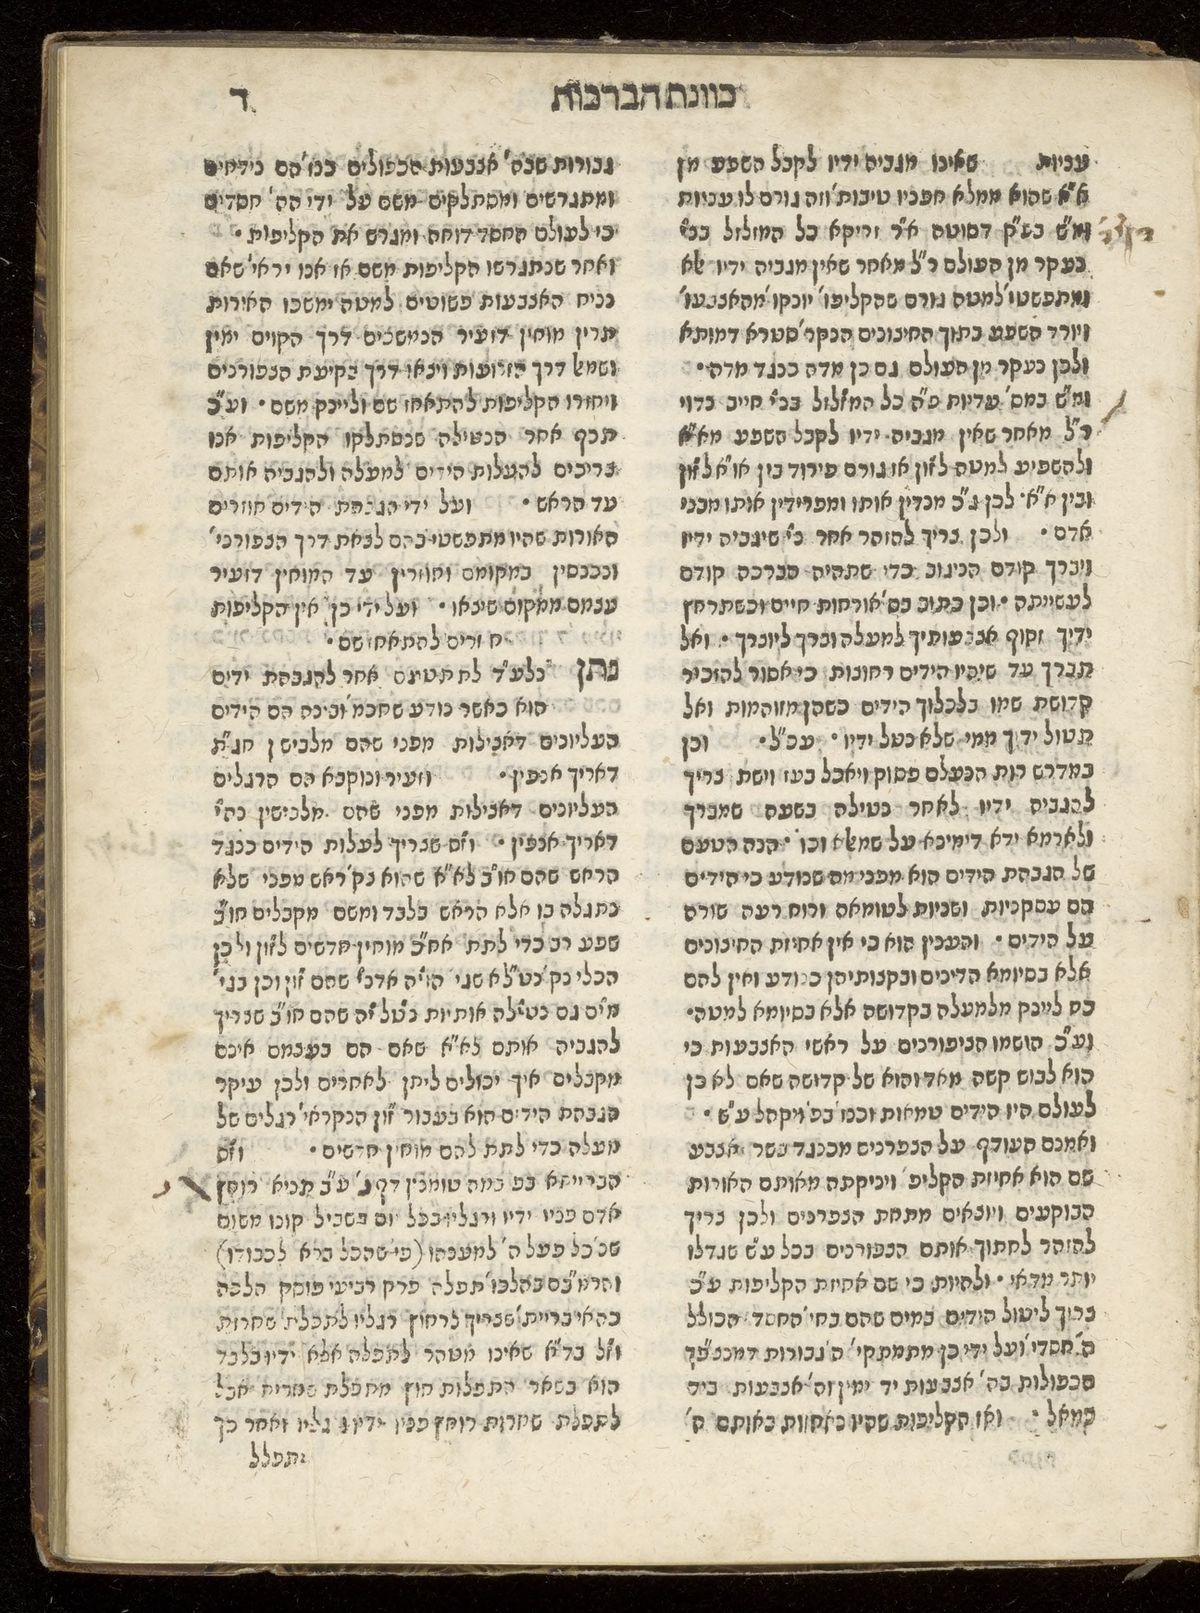 כוונת הברכות
ד
עניות שאינו מגביה ידיו לקבל השפע מן
א"א שהוא ממלא חפניו טיבות' וזה גורם לו עניות
ומ"ש בע"ק דסוטה א"ר זריקא כל המזלזל בנ"י
נעקר מן העולם ר"ל מאחר שאין מגביה ידיו אלא
ומתפשטי' למטה גורם שהקליפו' יונקו' מהאצבעו'
ויורד השפע בתוך החיצונים הנקר' סטרא דמותא
ולכן נעקר מן העולם גם כן מדה כנגד מדה·
ומ"ש במס' עדיות פ"ה כל המזלזל בנ"י חייב נדוי
ר"ל מאחר שאין מגביה ידיו לקבל השפע מא"א
ולהשפיע למטה לזו"ן אז גורם פירוד בין או"א לזו"ן
ובין א"א· לכן ג"כ מנדין אותו ומפרידין אותו מבני
אדם· ולכן צריך להזהר אחר נ"י שיגביה ידיו
ויברך קודם הניגוב כדי שתהיה הברכה קודם
לעשייתה· וכן כתוב בס' אורחות חיים וכשתרחץ
ידיך זקוף אצבעותיך למעלה וברך ליוצרך· ואל
תברך עד שיהיו הידים רחוצות כי אסור להזכיר
קדושת שמו בלכלוך הידים כשהן מזוהמות ואל
תטול ידיך ממי שלא נטל ידיו· עכ"ל· וכן
במדרש רות הנעלם פסוק ויאכל בעז וישת צריך
להגביה ידיו לאחר נטילה בשעה שמברך
ולארמא ידא דימינא על שמאלא וכו'· הנה הטעם
של הגבהת הידים הוא מפני מה שנודע כי הידים
הם עסקניות ושניות לטומאה ורוח רעה שורה
על הידים· והענין הוא כי אין אחיזת החיצונים
אלא בסיומא הדינים ובקצותיהן כנודע ואין להם
כח לינק מלמעלה בקדושה אלא בסיומא למטה·
וע"כ הושמו הציפורנים על ראשי האצבעות כי
הוא לבוש קשה מאד והוא של קדושה שאם לא כן
לעולם היו הידים טמאות וכנז' בפ' ויקהל ע"ש·
ואמנם העודף על הצפרנים מכנגד בשר אצבע
שם הוא אחיזת הקליפ' ויניקתה מאותם האורות
הבוקעים ויוצאים מתחת הצפרנים ולכן צריך
להזהר לחתוך אותם הצפורנים בכל ע"ש שגדלו
יותר מדאי· ולהיות כי שם אחיזת הקליפות ע"כ
צריך ליטול הידים במים שהם בחי' החסד הכולל
ה' חסדי' ועל ידי כן מתמתקי' ה' גבורות דמנצפ"ך
הכפולות בה' אצבעות יד ימין וה' אצבעות ביד
שמאל· ואז הקליפות שהיו נאחזות באותם ה'
גבורות שבה' אצבעות הכפולים כנז' הם נידחים
ומתגרשים ומסתלקים משם על ידי הה' חסדים
כי לעולם החסד דוחה ומגרש את הקליפות·
ואחר שנתגרשו הקליפות משם אז אנו יראי' שאם
נניח האצבעות פשוטים למטה ימשכו האורות
תרין מוחין דזעיר הנמשכים דרך הקוים ימין
ושמאל דרך הזרועות ויצאו דרך בקיעת הצפורנים
ויחזרו הקליפות להתאחז שם ולינק משם· וע"כ
תכף אחר הנטילה שנסתלקו הקליפות אנו
צריכים להעלות הידים למעלה ולהגביה אותם
עד הראש· ועל ידי הגבהת הידים חוזרים
האורות שהיו מתפשטי' בהם לצאת דרך הצפורני'
ונכנסין במקומם וחוזרין עד המוחין דזעיר
עצמם ממקום שיצאו· ועל ידי כן אין הקליפות
חוזרים להתאחז שם·
נתן כלע"ד לתת טעם אחר להגבהת ידים
הוא כאשר נודע שחכמ' ובינה הם הידים
העליונים דאצילות מפני שהם מלבישין חג"ת
דאריך אנפין· וזעיר ונוקבא הם הרגלים
העליונים דאצילות מפני שהם מלבישין נה"י
דאריך אנפין· וז"ש שצריך לעלות הידים כנגד
הראש שהם חו"ב לא"א שהוא נק' ראש מפני שלא
נתגלה בו אלא הראש בלבד ומשם מקבלים חו"ב
שפע רב כדי לתת אח"כ מוחין חדשים לזו"ן ולכן
הכלי נק' נט"לא שני הוי"ה אדנ"י שהם זו"ן וכן בגי'
מ"ים גם נט"ילה אותיות נ"טל י"ה שהם חו"ב שצריך
להגביה אותם לא"א שאם הם בעצמם אינם
מקבלים איך יכולים ליתן לאחרים ולכן עיקר
הגבהת הידים הוא בעבור זו"ן הנקראי' רגלים של
מעלה כדי לתת להם מוחין חדשים· וז"ס
הברייתא בפ' במה טומנין דף נ' ע"ב תניא רוחץ
אדם פניו ידיו ורגליו בכל יום בשביל קונו משום
שנ' כל פעל ה' למענהו (פי' שהכל ברא לכבודו)
והרמ"בם בהלכו' תפלה פרק רביעי פוסק הלכה
כהאי ברייית' שצריך לרחוץ רגליו לתפלת שחרית
וז"ל בד"א שאינו מטהר לתפלה אלא ידיו בלבד
הוא בשאר התפלות חוץ מתפלת שחרית אבל
לתפלת שחרית רוחץ פניו ידיו ורגליו ואחר כך
יתפלל